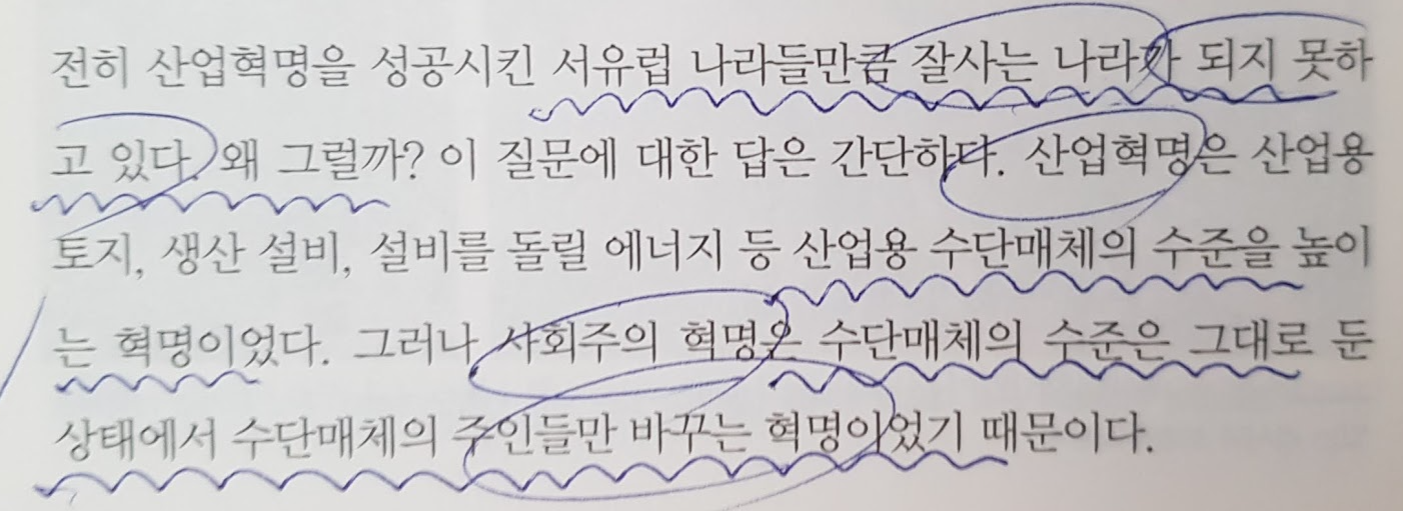 전히 산업혁명을 성공시킨 서유럽 나라들만큼 잘사는 나라가 되지 못하
고 있다. 왜 그럴까? 이 질문에 대한 답은 간단하다. 산업혁명은 산업용
토지, 생산 설비, 설비를 돌릴 에너지 등 산업용 수단매체의 수준을 높이
는 혁명이었다. 그러나 사회주의 혁명은 수단매체의 수준은 그대로 둔
상태에서 수단매체의 주인들만 바꾸는 혁명이었기 때문이다.